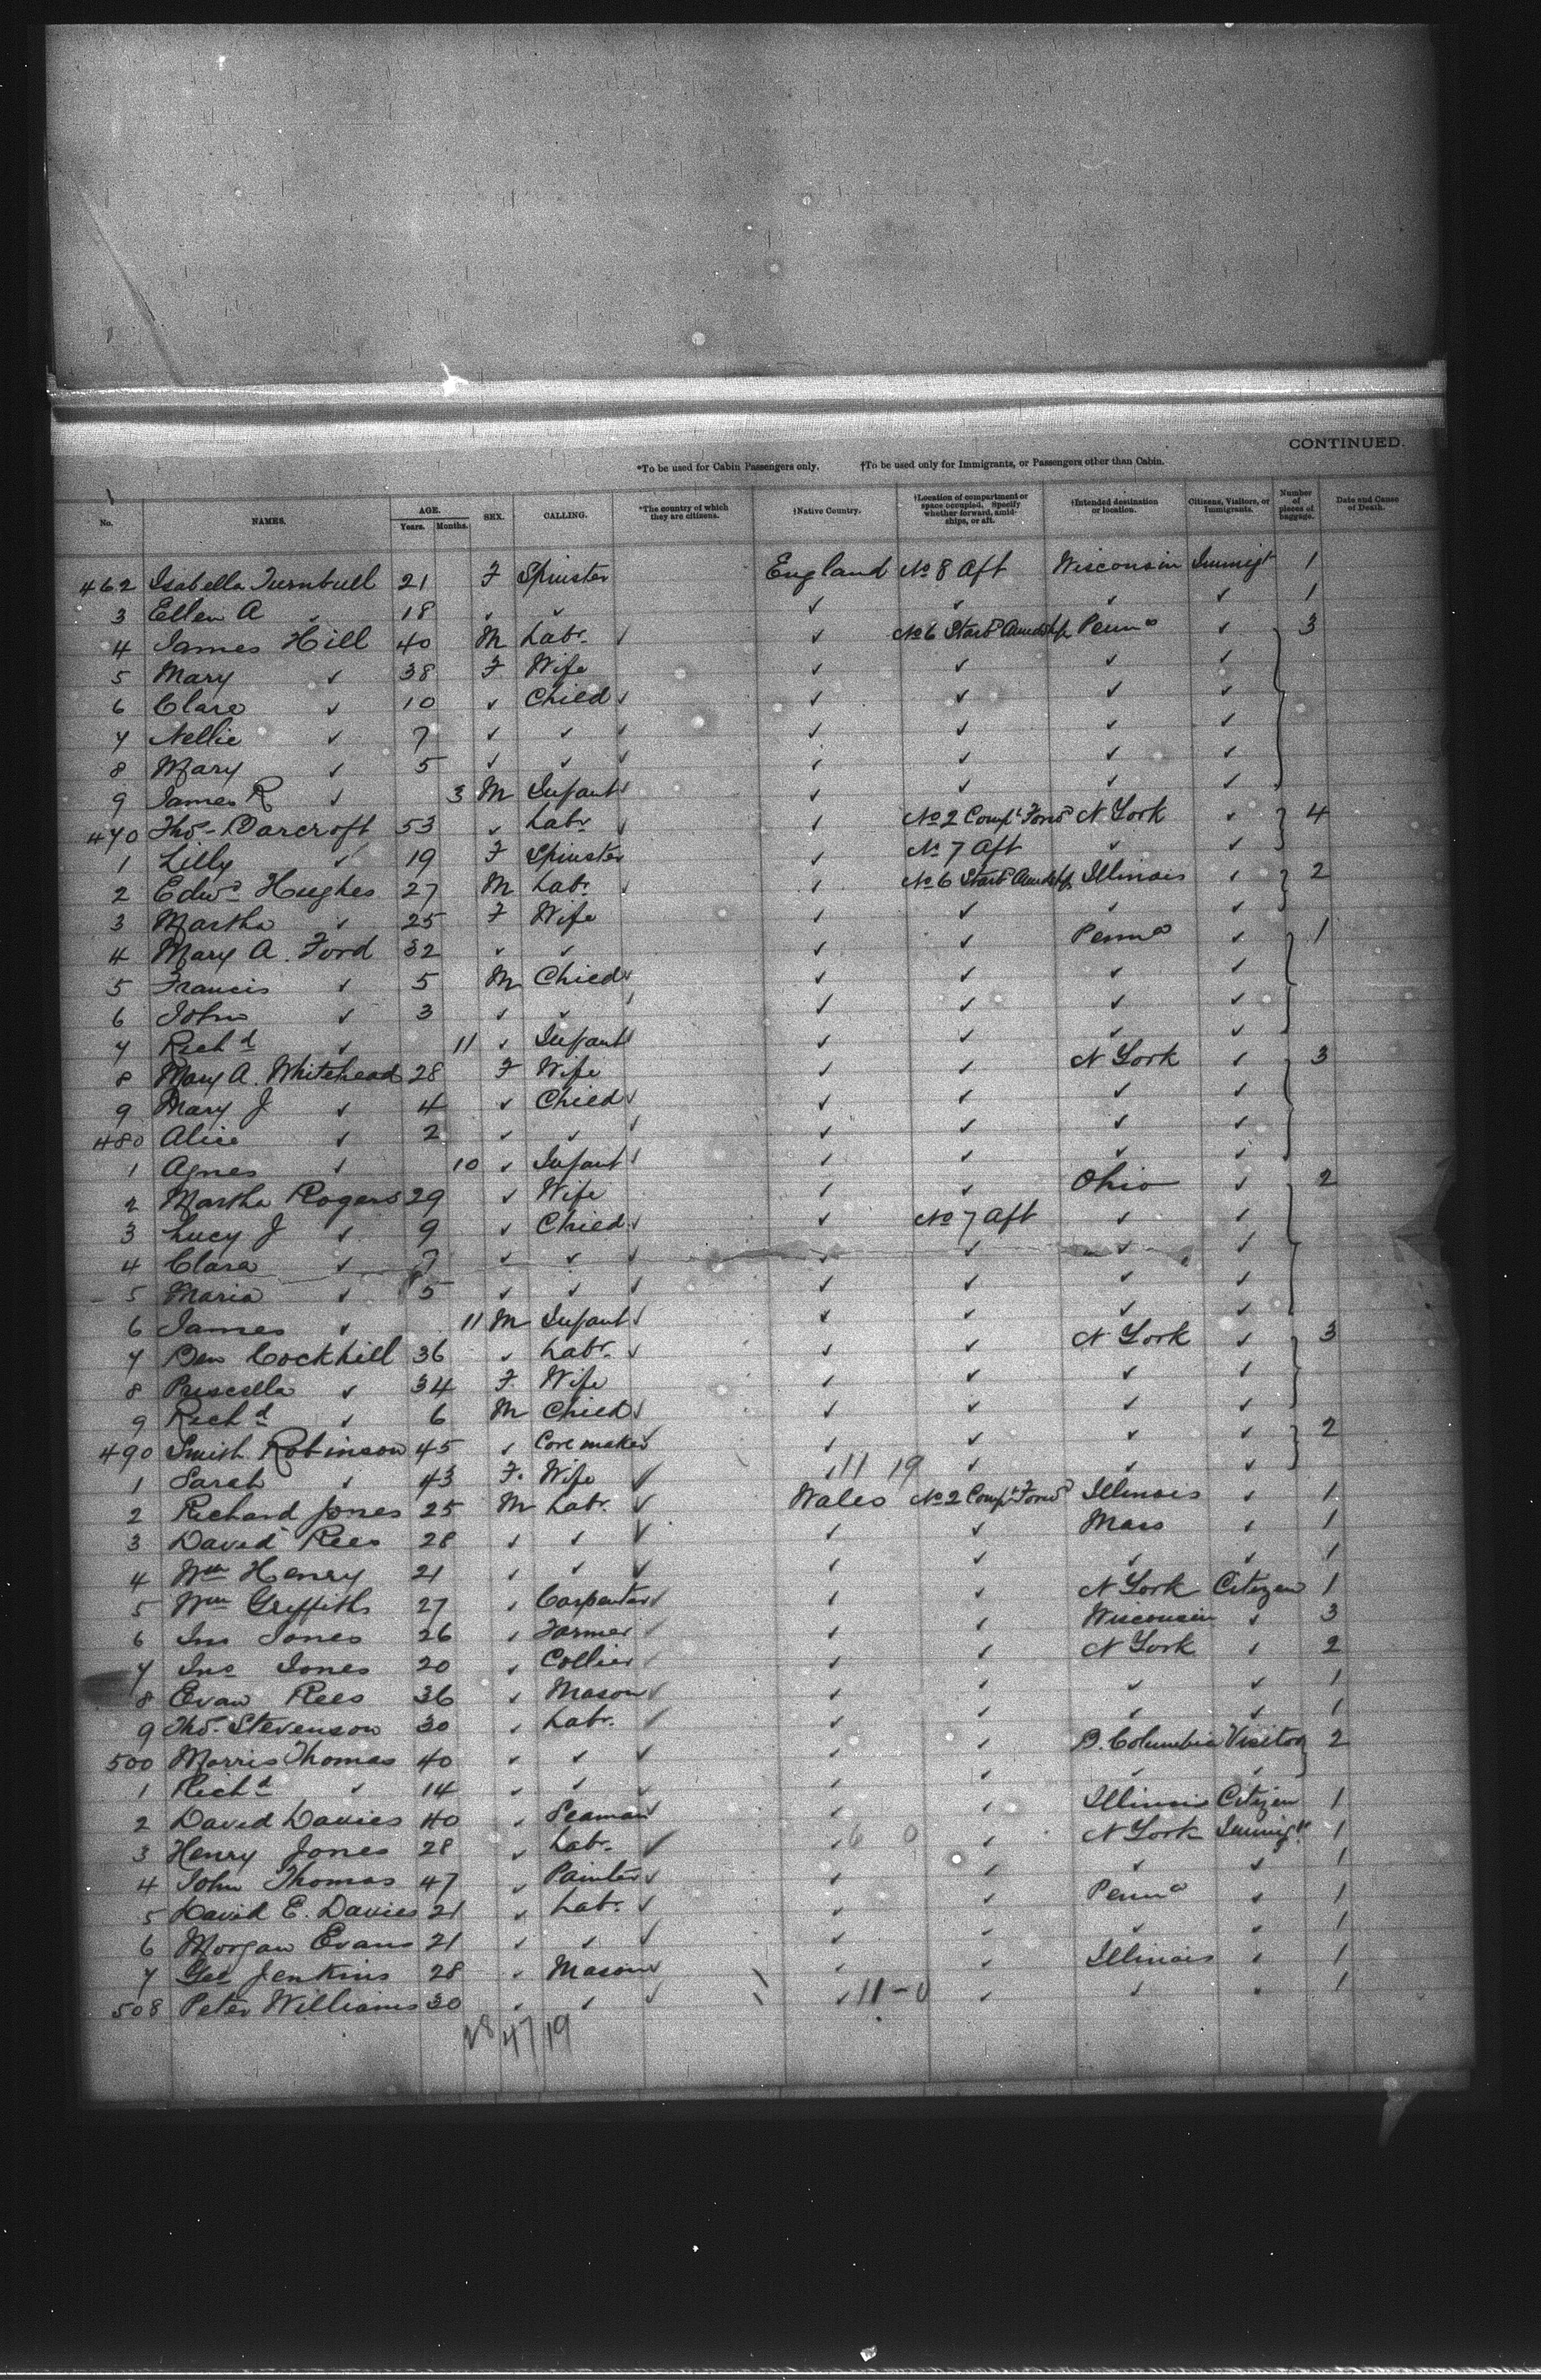 CONTINUED.
*To be used for Cabin Passengers only. †To be used only for Immigrants, or Passengers other than Cabin.
No. NAMES. AGE. Years. Months. SEX. CALLING. *The country of which they are citizens. †Native Country. †Location of compartment or space occupied. Specify whether forward, amidships, or aft. †Intended destination or location. Citizens, Visitors, or Immigrants. Number of pieces of baggage. Date and Cause of Death.
462 Isabella Turnbull 21 F Spinster England No 8 Aft Wisconsin Immigt 1
3 Ellen A ✓ 18 ✓ ✓ ✓ ✓ ✓ ✓ 1
4 James Hill 40 M Labr ✓ ✓ No 6 Starbd Amidsh Penna ✓ 3
5 Mary ✓ 38 F Wife ✓ ✓ ✓ ✓
6 Clara ✓ 10 ✓ Child ✓ ✓ ✓ ✓ ✓
7 Nellie ✓ 7 ✓ ✓ ✓ ✓ ✓ ✓ ✓
8 Mary ✓ 5 ✓ ✓ ✓ ✓ ✓ ✓ ✓
9 James R ✓ 3 M Infant ✓ ✓ ✓ ✓ ✓
470 Thos Barcroft 53 ✓ Labr ✓ ✓ No 2 Compt Forwd N York ✓ 4
1 Lilly ✓ 19 F Spinster ✓ No 7 Aft ✓ ✓
2 Edwd Hughes 27 M Labr ✓ ✓ No 6 Starbd Amidsh Illinois ✓ 2
3 Martha ✓ 25 F Wife ✓ ✓ ✓ ✓
4 Mary A. Ford 32 ✓ ✓ ✓ ✓ Penna ✓ 1
5 Francis ✓ 5 M Child ✓ ✓ ✓ ✓ ✓
6 John ✓ 3 ✓ ✓ ✓ ✓ ✓ ✓ ✓
7 Richd ✓ 11 ✓ Infant ✓ ✓ ✓ ✓ ✓
8 Mary A. Whitehead 28 F Wife ✓ ✓ N York ✓ 3
9 Mary J ✓ 4 ✓ Child ✓ ✓ ✓ ✓ ✓
480 Alice ✓ 2 ✓ ✓ ✓ ✓ ✓ ✓ ✓
1 Agnes ✓ 10 ✓ Infant ✓ ✓ ✓ ✓ ✓
2 Martha Rogers 29 ✓ Wife ✓ ✓ Ohio ✓ 2
3 Lucy J ✓ 9 ✓ Child ✓ ✓ No 7 Aft ✓ ✓
4 Clara ✓ 7 ✓ ✓ ✓ ✓ ✓ ✓ ✓
5 Maria ✓ 5 ✓ ✓ ✓ ✓ ✓ ✓ ✓
6 James ✓ 11 M Infant ✓ ✓ ✓ ✓ ✓
7 Ben Cockhill 36 ✓ Labr ✓ ✓ ✓ N York ✓ 3
8 Priscilla ✓ 34 F. Wife ✓ ✓ ✓ ✓
9 Richd ✓ 6 M Child ✓ ✓ ✓ ✓ ✓
490 Smith Robinson 45 ✓ Core maker ✓ ✓ ✓ ✓ ✓ 2
1 Sarah ✓ 43 F. Wife ✓ ✓ 11 19 ✓ ✓ ✓
2 Richard Jones 25 M Labr ✓ Wales No 2 Compt Forwd Illinois ✓ 1
3 David Rees 28 ✓ ✓ ✓ ✓ ✓ Mass ✓ 1
4 Wm Henry 21 ✓ ✓ ✓ ✓ ✓ ✓ ✓ 1
5 Wm Griffiths 27 ✓ Carpenter ✓ ✓ ✓ N York Citizen 1
6 Jno Jones 26 ✓ Farmer ✓ ✓ ✓ Wisconsin ✓ 3
7 Jno Jones 20 ✓ Collier ✓ ✓ ✓ N York ✓ 2
8 Evan Rees 36 ✓ Mason ✓ ✓ ✓ ✓ ✓ 1
9 Thos Stevenson 30 ✓ Labr ✓ ✓ ✓ ✓ ✓ 1
500 Morris Thomas 40 ✓ ✓ ✓ ✓ ✓ B. Columbia Visitor 2
1 Richd ✓ 14 ✓ ✓ ✓ ✓ ✓ ✓ ✓
2 David Davies 40 ✓ Seaman ✓ ✓ ✓ Illinois Citizen 1
3 Henry Jones 28 ✓ Labr ✓ ✓ 6 0 ✓ N York Immigt 1
4 John Thomas 47 ✓ Painter ✓ ✓ ✓ ✓ ✓ 1
5 David E. Davies 21 ✓ Labr ✓ ✓ ✓ Penna ✓ 1
6 Morgan Evans 21 ✓ ✓ ✓ ✓ ✓ ✓ ✓ 1
7 Geo Jenkins 28 ✓ Mason ✓ ✓ ✓ Illinois ✓ 1
508 Peter Williams 30 ✓ ✓ ✓ ✓ 11-0 ✓ ✓ ✓ 1
28/47/19